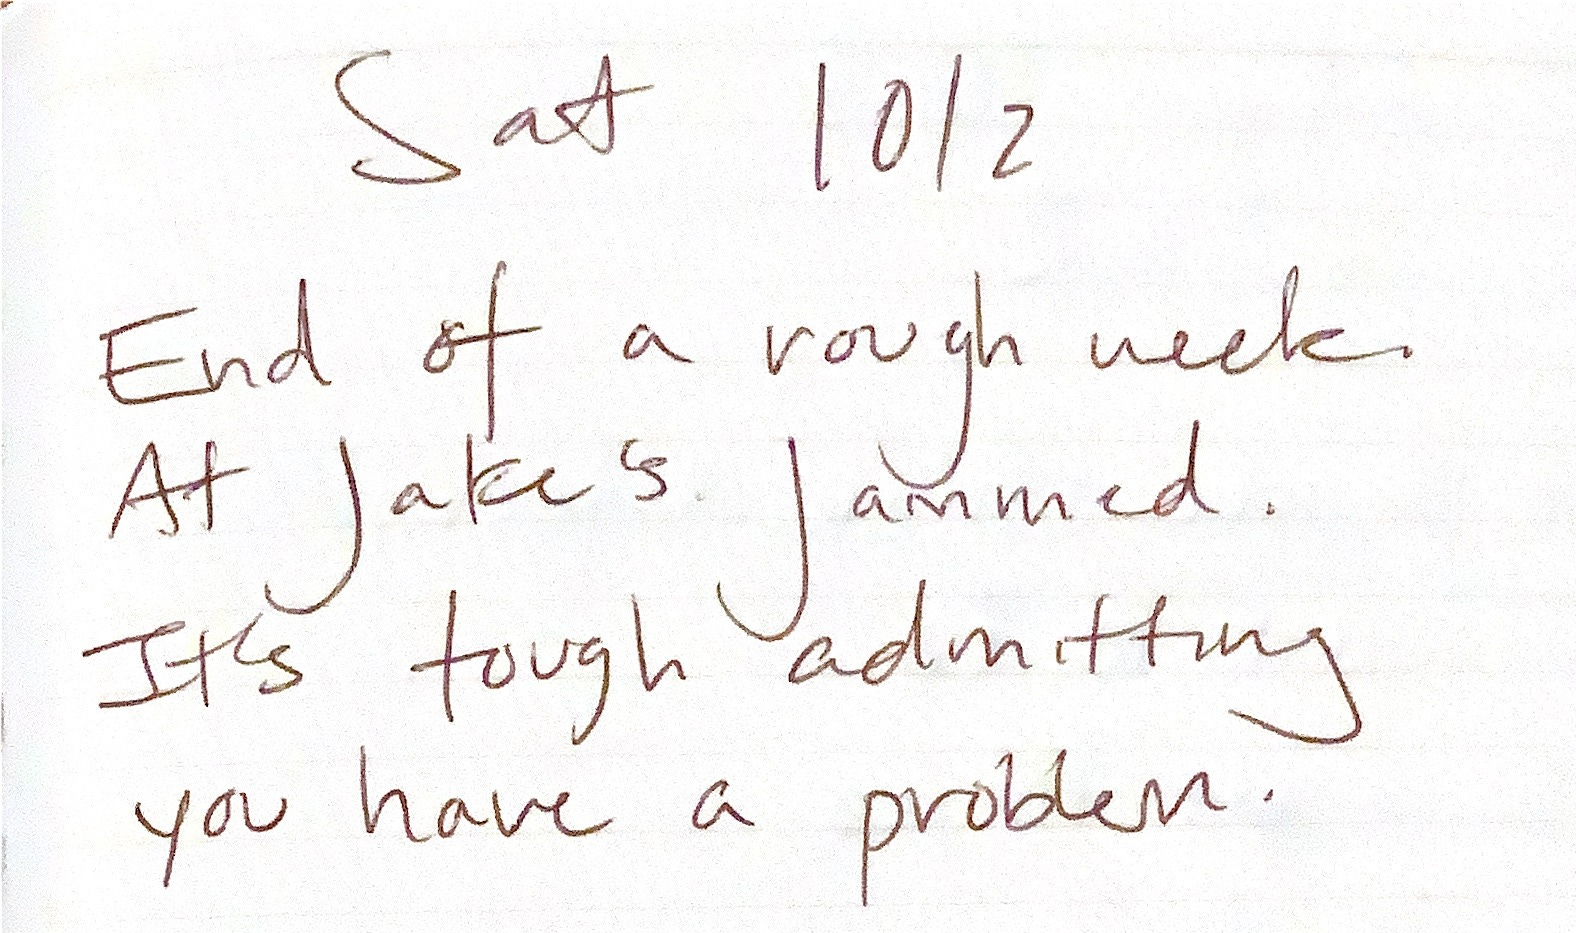 Sat 10/2
End of a rough week.
At Jake's. Jammed.
It's tough admitting
you have a problem.